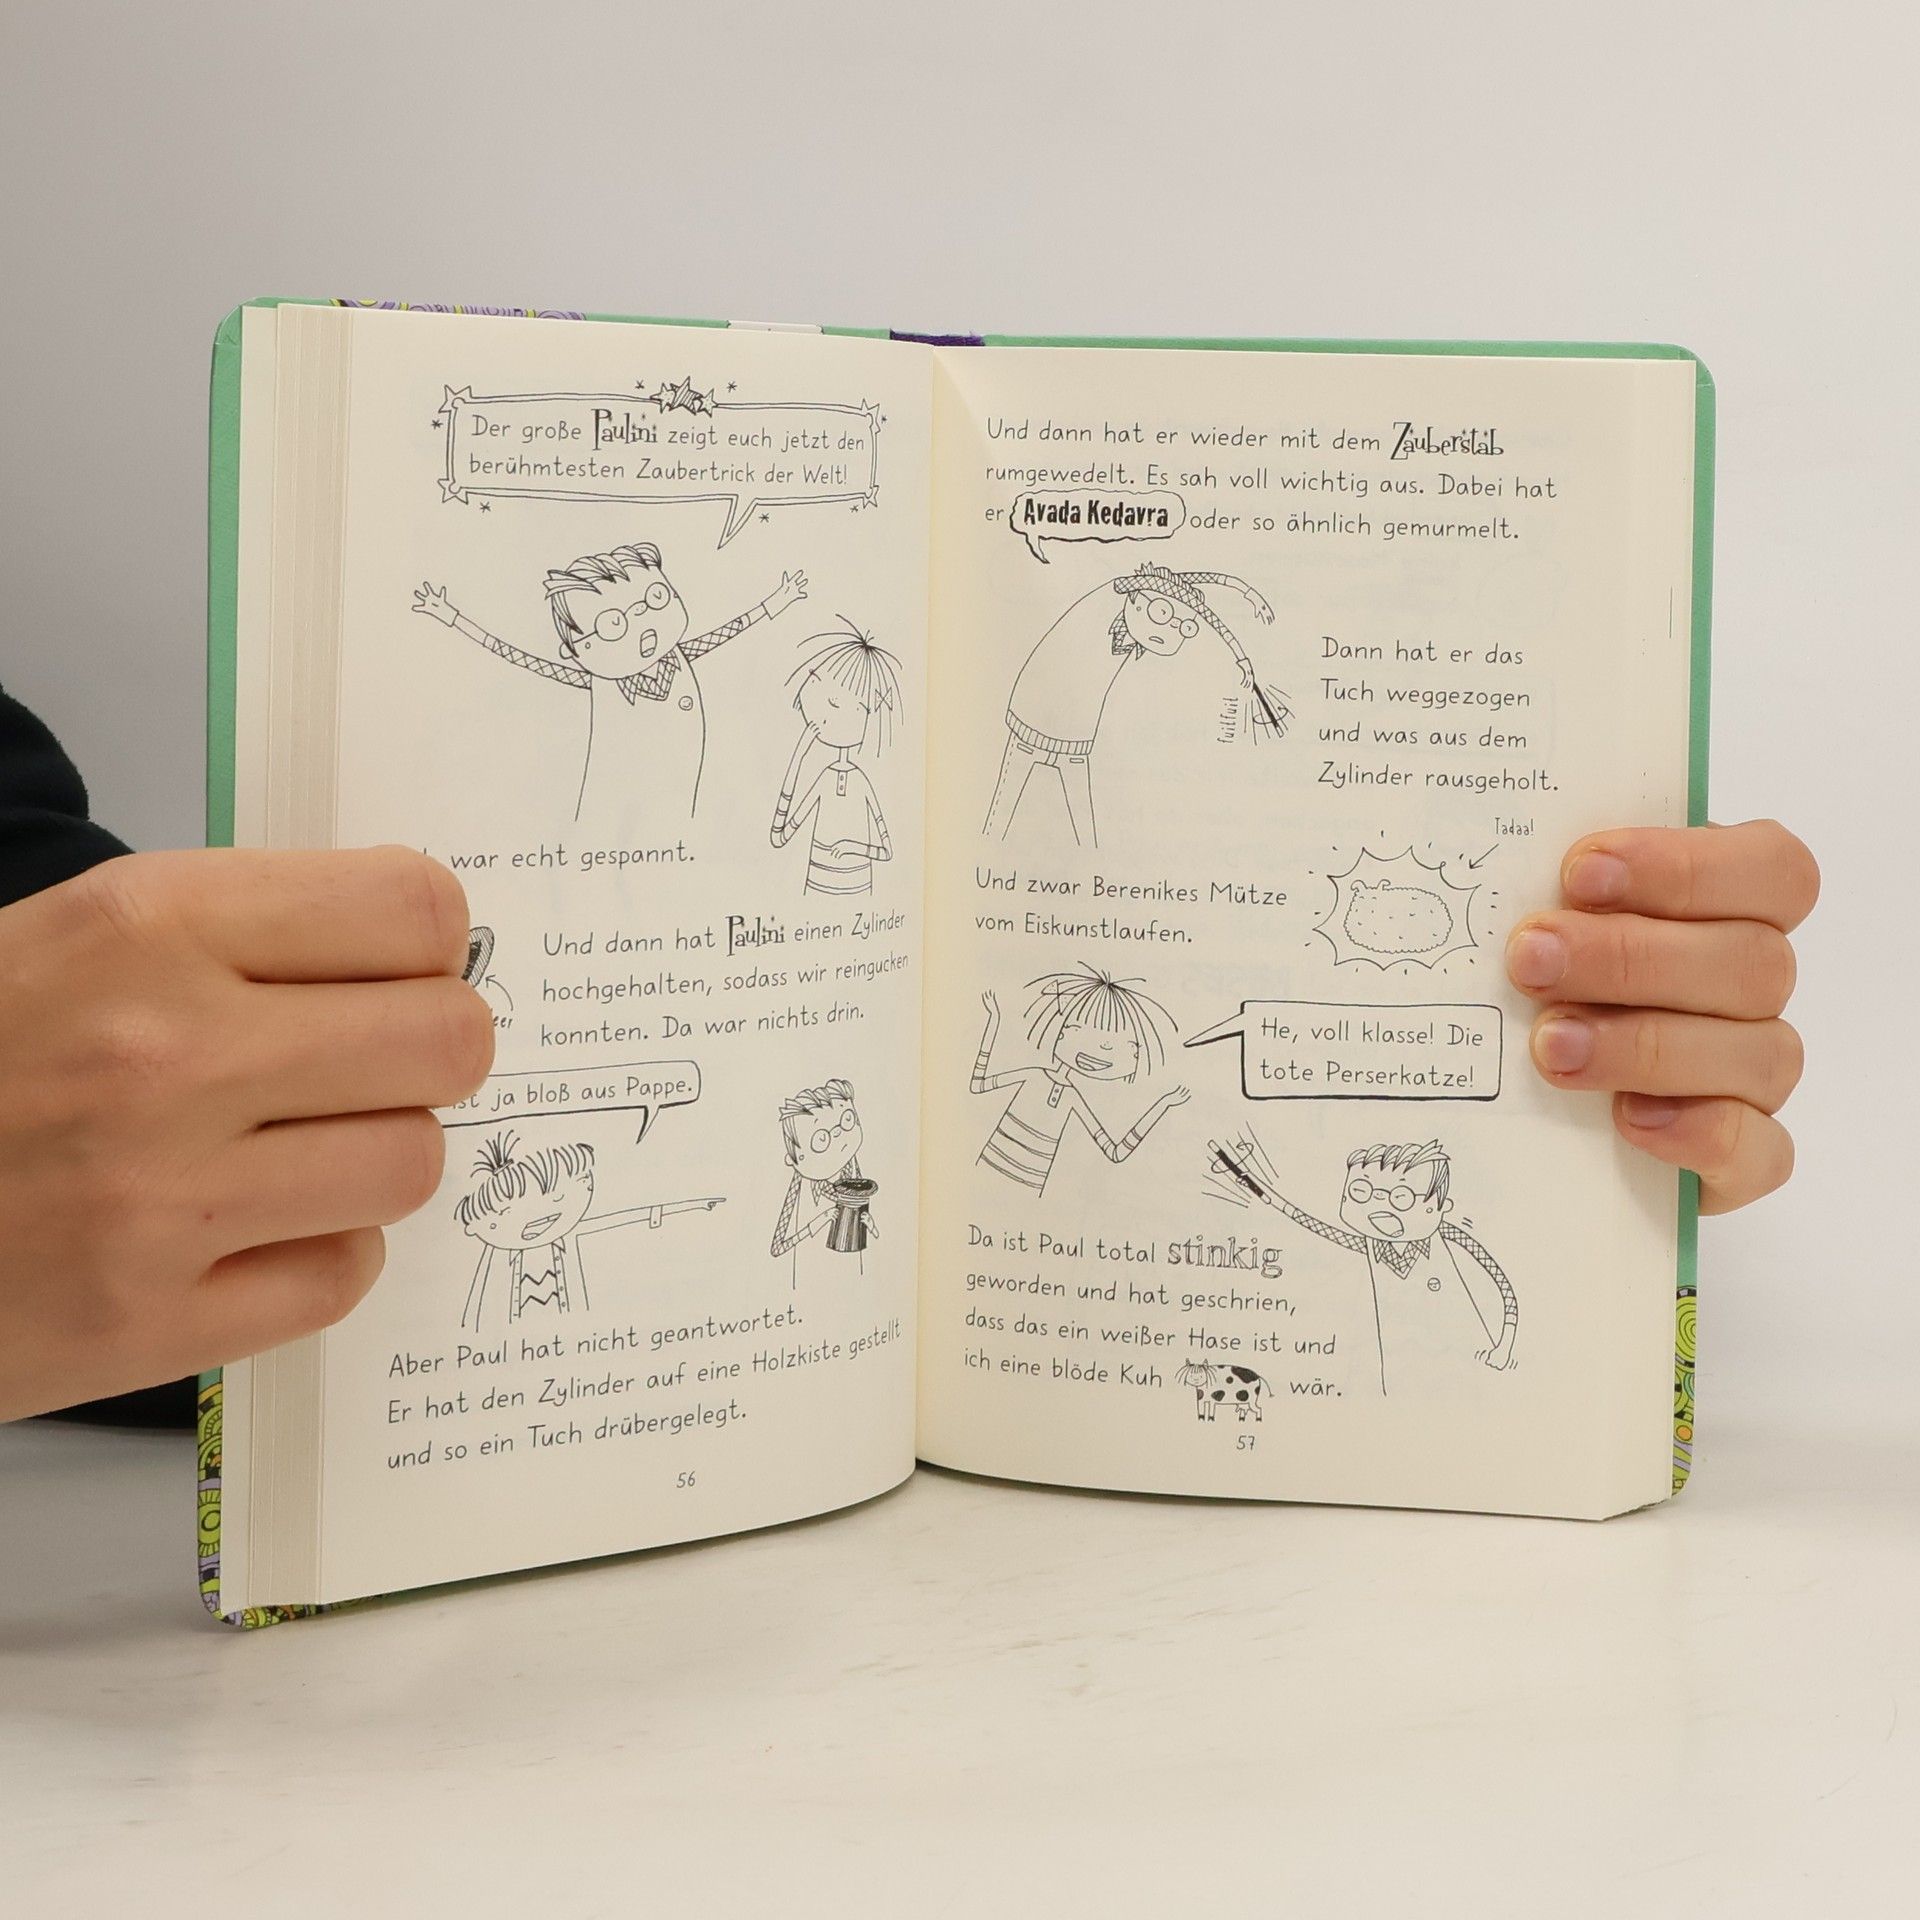 Der große Paulini zeigt euch jetzt den
berühmtesten Zaubertrick der Welt!
war echt gespannt.
Und dann hat Paulini einen Zylinder
hochgehalten, sodass wir reingucken
konnten. Da war nichts drin.
ja bloß aus Pappe.
Aber Paul hat nicht geantwortet.
Er hat den Zylinder auf eine Holzkiste gestellt
und so ein Tuch drübergelegt.
56
Und dann hat er wieder mit dem Zauberstab
rumgewedelt. Es sah voll wichtig aus. Dabei hat
er Avada Kedavra oder so ähnlich gemurmelt.
fuitfuit
Dann hat er das
Tuch weggezogen
und was aus dem
Zylinder rausgeholt.
Tadaa!
Und zwar Berenikes Mütze
vom Eiskunstlaufen.
He, voll klasse! Die
tote Perserkatze!
Da ist Paul total stinkig
geworden und hat geschrien,
dass das ein weißer Hase ist und
ich eine blöde Kuh wär.
57